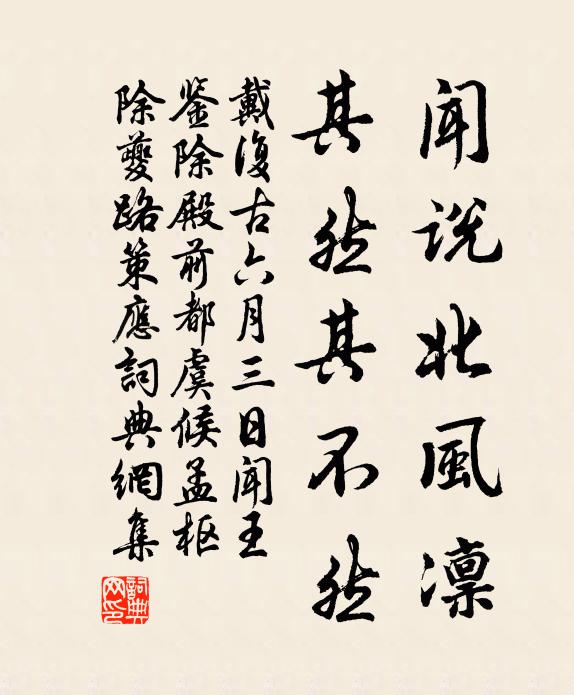 闻说北風凛
其然其不然
戴復古六月三日闻王
鉴除殿前都虞候孟枢
除夔路策應詞典網集
詞典網印